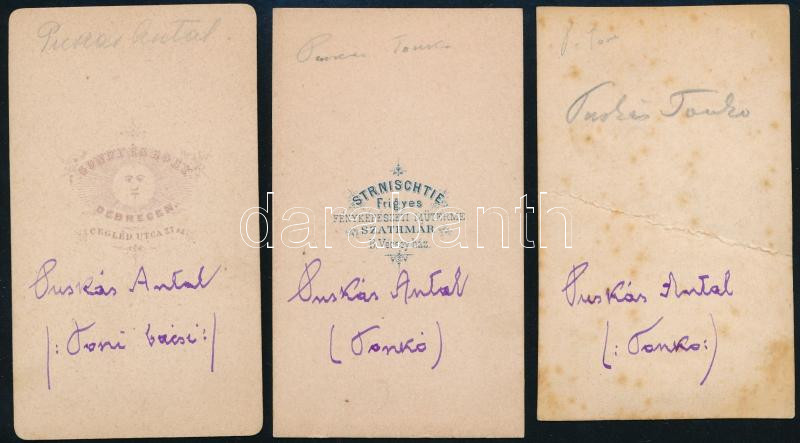 Puskás Antal.
GONDY ÉS EGEY
DEBRECEN.
CZEGLÉD UTCA
Puskás Antal
/: Toni bácsi :/
Puskás Tonko
STRNISCHTIE
Frigyes
FÉNYKÉPÉSZETI MŰTERME
SZATHMÁR
D. Vécsey ház.
Puskás Antal
(Tonkó)
P. Ton
Puskás Tonko
Puskás Antal
(: Tonko :)
darabanth